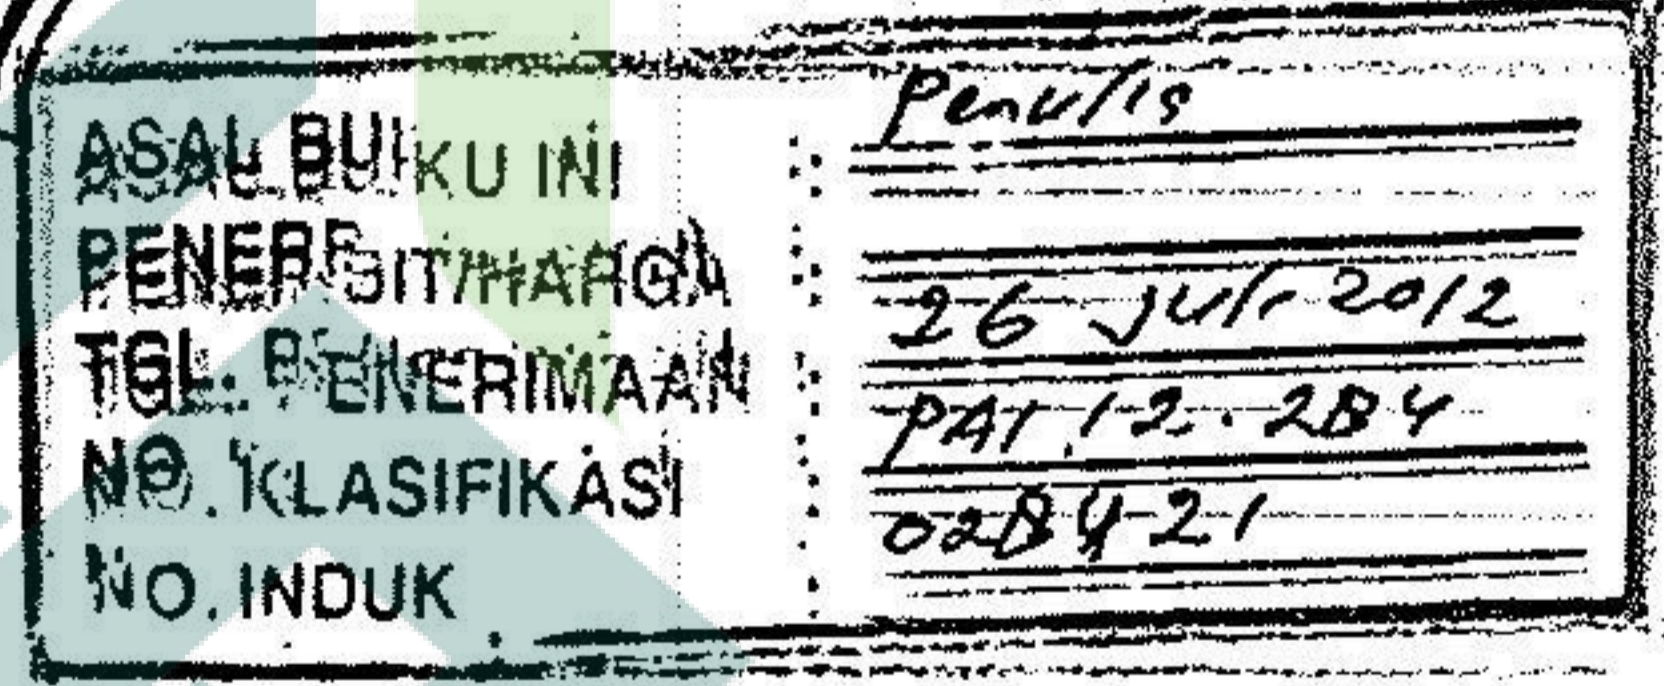 ASAL BUKU INI : Penulis
PENERBIT/HARGA :
TGL. PENERIMAAN : 26 Juli 2012
NO. KLASIFIKASI : PAI 12.284
NO. INDUK : 028421